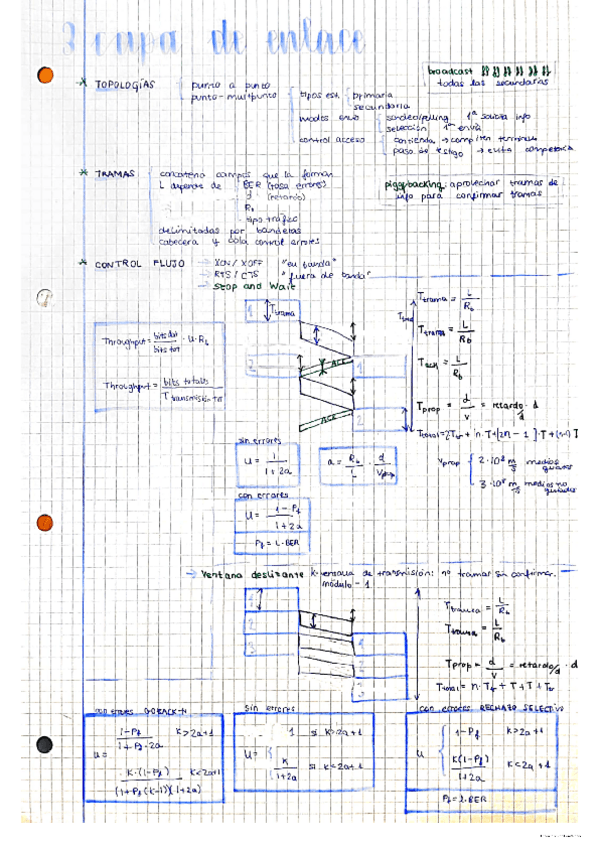 3 capa de enlace
broadcast
todas las secundarias
* TOPOLOGÍAS
punto a punto
punto-multipunto
tipos est.
primaria
secundaria
modos envío
sondeo/polling 1º solicita info
selección 1º envía
control acceso
contienda → compiten terminales
paso de testigo → evita competencia
* TRAMAS
concateno campos que la forman
L depende de
BER (tasa errores)
d (retardo)
Rb
tipo tráfico
delimitadas por banderas
cabecera y cola control errores
piggybacking: aprovechar tramas de
info para confirmar tramas
* CONTROL FLUJO
→ XON/XOFF "en banda"
→ RTS/CTS "fuera de banda"
→ Stop and Wait
1
Ttrama
2
ACK
1
ACK
2
Throughput = bits dat / bits tot · U · Rb
Throughput = bits totales / T transmisión tot
Ttrama = L / Rb
Ttrama = L / Rb
Tack = L / Rb
Tprop = d / v = retardo · d
Vprop
2·10⁸ m/s medios guiados
3·10⁸ m/s medios no guiados
sin errores
U = 1 / 1+2a
a = Rb / L · d / Vprop
con errores
U = 1-Pf / 1+2a
Pf = L·BER
→ Ventana deslizante K-ventana de transmisión: nº tramas sin confirmar.
módulo - 1
1
2
3
1
2
3
Ttrama = L / Rb
Ttrama = L / Rb
Tprop = d / v = retardo/d · d
con errores GOBACK-N
U =
1-Pf / 1+Pf·2a K>2a+1
K·(1-Pf) / (1+Pf(K-1))(1+2a) K<2a+1
sin errores
U =
1 si K>2a+1
K / 1+2a si K<2a+1
con errores RECHAZO SELECTIVO
U
1-Pf K>2a+1
K(1-Pf) / 1+2a K<2a+1
Pf = L·BER